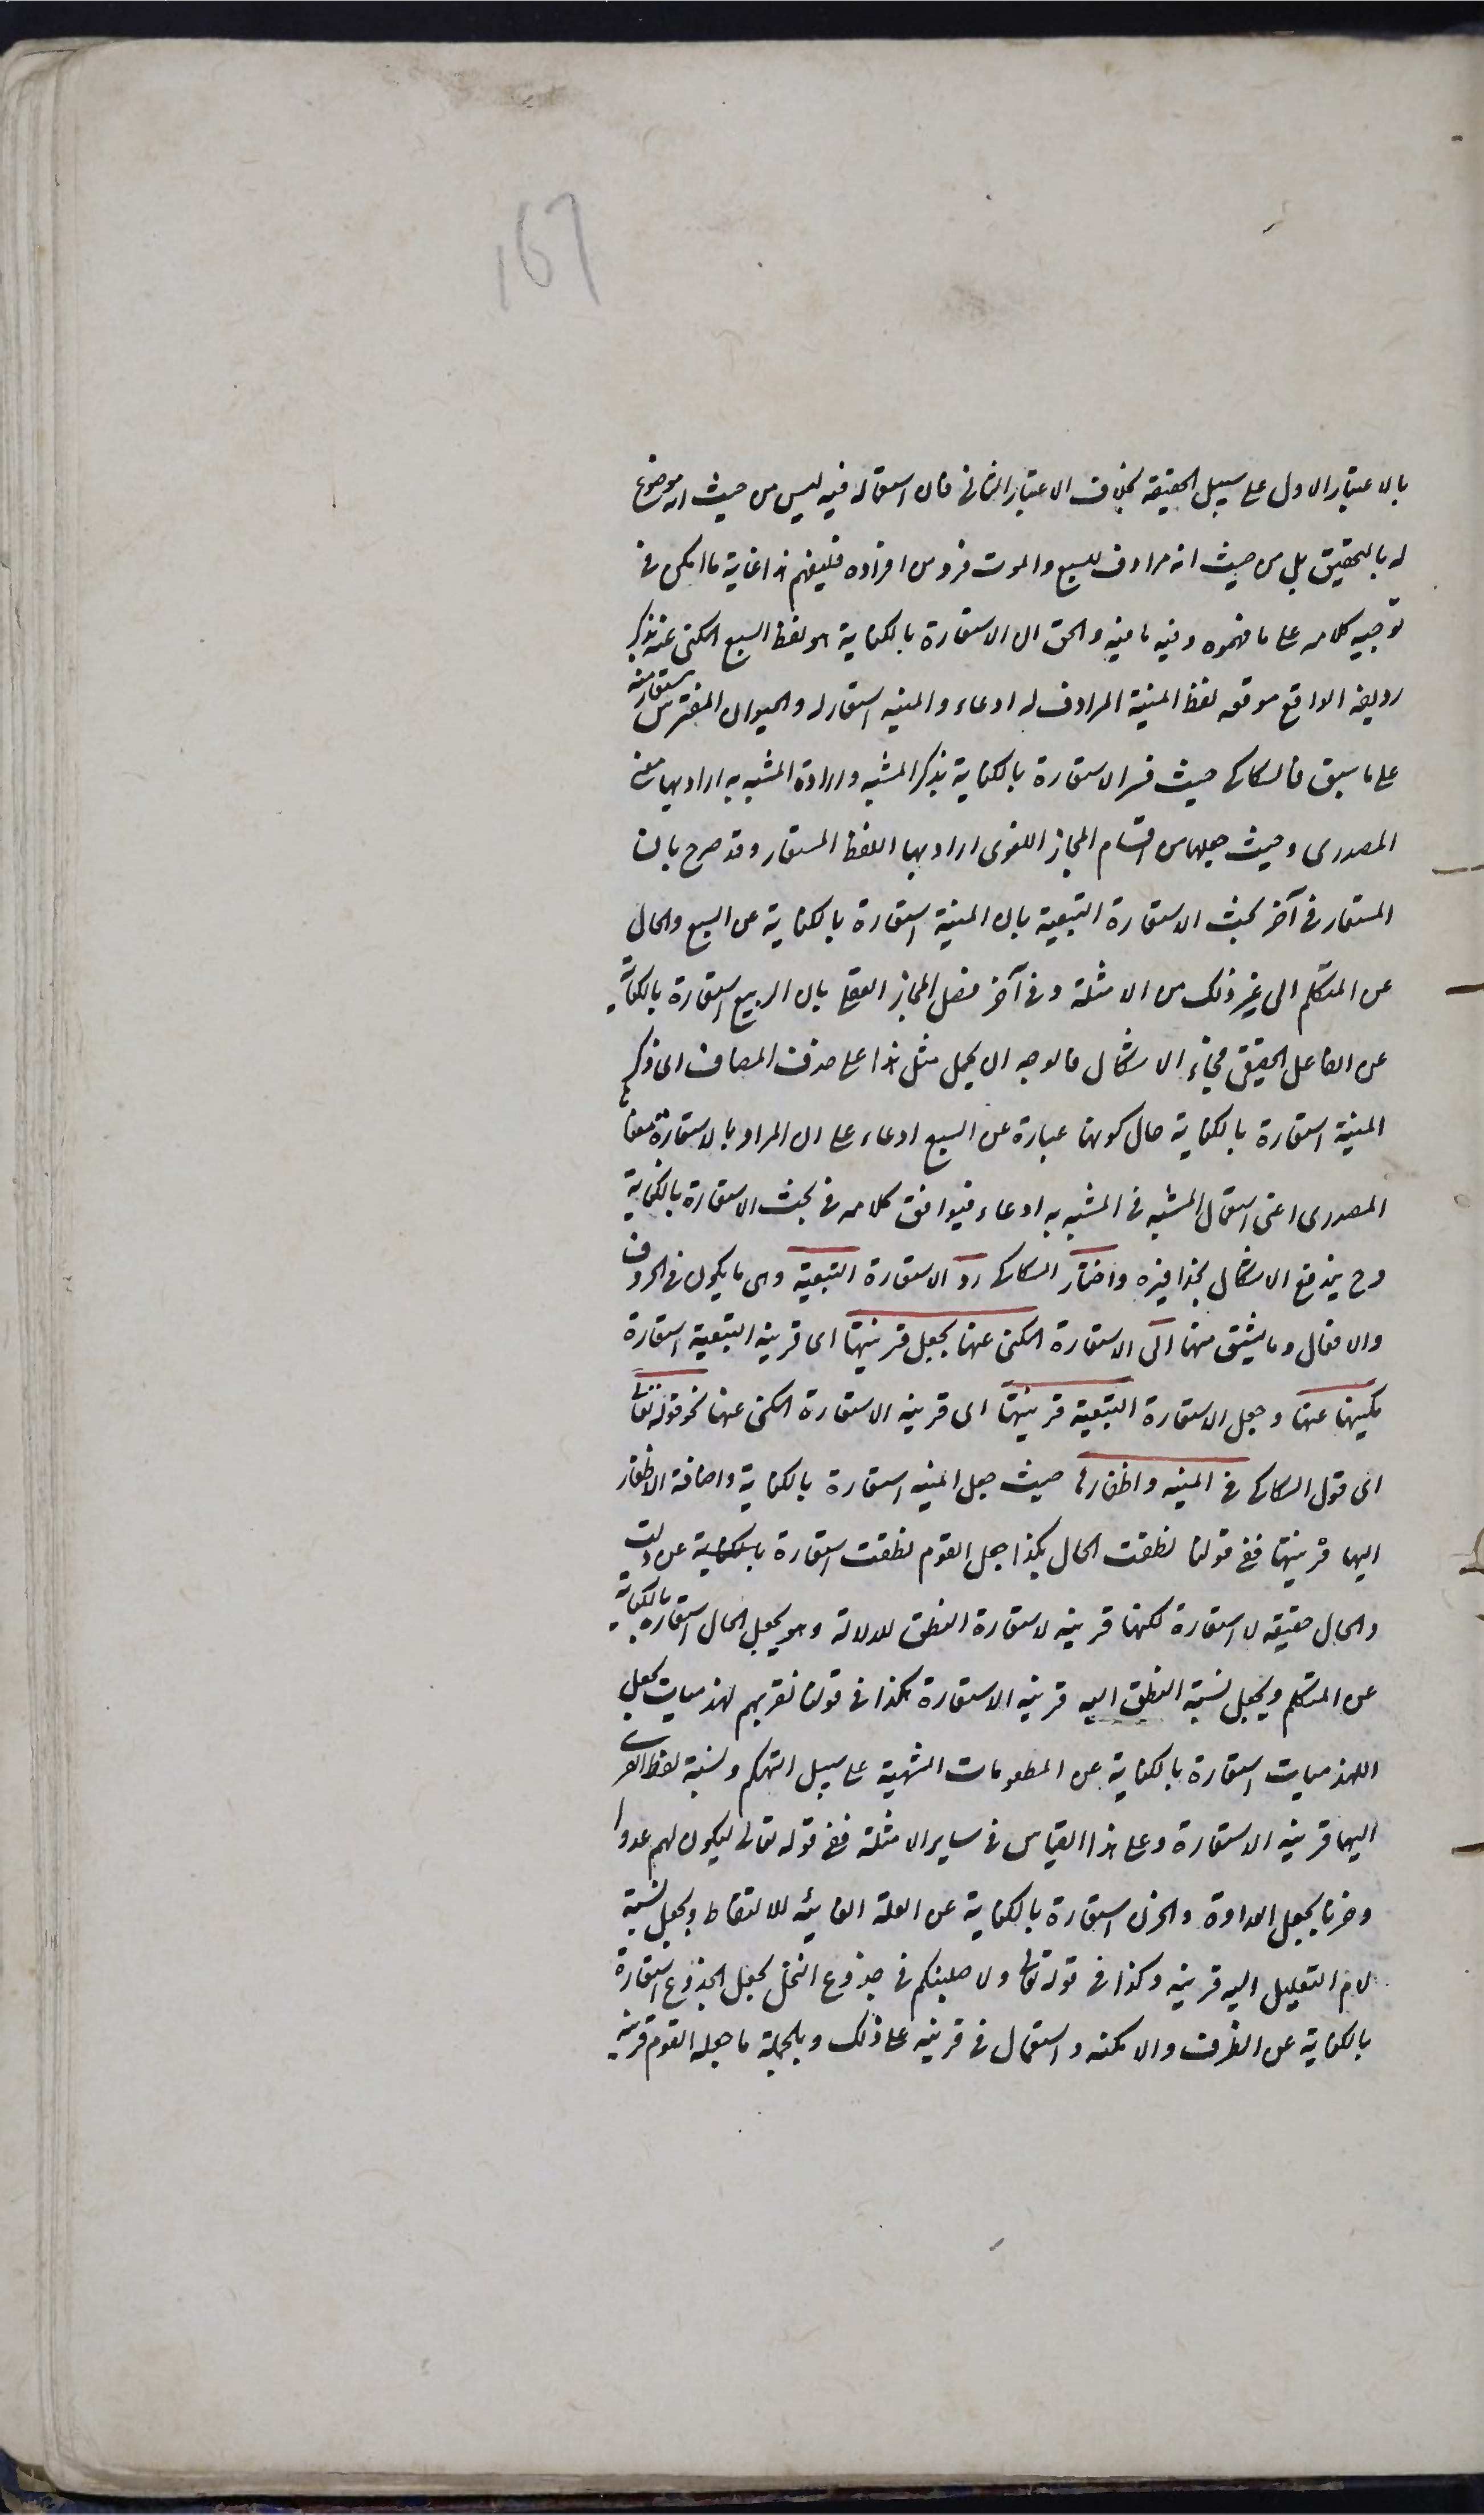 167
بالاعتبار الاول على سبيل الحقيقة بخلاف الاعتبار الثانى فان استعماله فيه ليس من حيث انه موضوع
له بالتحقيق بل من حيث انه مرادف للسبع والموت فرد من افراده فليفهم هذا غاية ما امكن فى
توجيه كلامه على ما فهموه وفيه ما فيه والحق ان الاستعارة بالكناية هو لفظ السبع المكنى عنه بذكر
رديفه الواقع موقعه لفظ المنية المرادف له ادعاء والمنيه استعار له والحيوان المفترس مستعار منه
على ما سبق فالسكاكى حيث فسر الاستعارة بالكناية بذكر المشبه وارادة المشبه به اراد بها معنى
المصدرى وحيث جعلها من اقسام المجاز اللغوى اراد بها اللفظ المستعار وقد صرح بان
المستعار فى آخر بحث الاستعارة التبعية بان المنية استعارة بالكناية عن السبع والحال
عن المتكلم الى غير ذلك من الامثلة وفى آخر فصل المجاز العقلى بان الربيع استعارة بالكناية
عن الفاعل الحقيقى فجاء الاشكال فالوجه ان يحمل مثل هذا على حذف المضاف اى ذكر
المنية استعارة بالكناية حال كونها عبارة عن السبع ادعاء على ان المراد بالاستعارة معناها
المصدرى اعنى استعمال المشبه فى المشبه به ادعاء فيوافق كلامه فى بحث الاستعارة بالكناية
وح يندفع الاشكال بحذافيره واختار السكاكى رد الاستعارة التبعية وهى ما يكون فى الحروف
والافعال وما يشتق منها الى الاستعارة المكنى عنها بجعل قرينتها اى قرينه التبعية استعارة
مكنيها عنها وجعل الاستعارة التبعية قرينتها اى قرينه الاستعارة المكنى عنها نحو قوله تعالى
اى قول السكاكى فى المنيه واظفارها حيث جعل المنيه استعارة بالكناية واضافة الاظفار
اليها قرينتها ففى قولنا نطقت الحال بكذا جعل القوم نطقت استعارة بالكناية عن دلت
والحال حقيقه لا استعارة لكنها قرينه لاستعارة النطق للدلالة وهو يجعل الحال استعارة بالكناية
عن المتكلم ويجعل نسبة النطق اليه قرينه الاستعارة هكذا فى قولنا نقريهم لهذميات يجعل
اللهذميات استعارة بالكناية عن المطعومات الشهية على سبيل التهكم ونسبة لفظ القرى
اليها قرينه الاستعارة وعلى هذا القياس فى ساير الامثلة ففى قوله تعالى ليكون لهم عدوا
وحزنا يجعل العداوة والحزن استعارة بالكناية عن العلة الغائيه للالتقاط ويجعل نسبة
لام التعليل اليه قرينه وكذا فى قوله تعالى ولاصلبنكم فى جذوع النخل يجعل الجذوع استعارة
بالكناية عن الظرف والامكنه واستعمال فى قرينه على ذلك وبالجملة ما جعله القوم قرينه